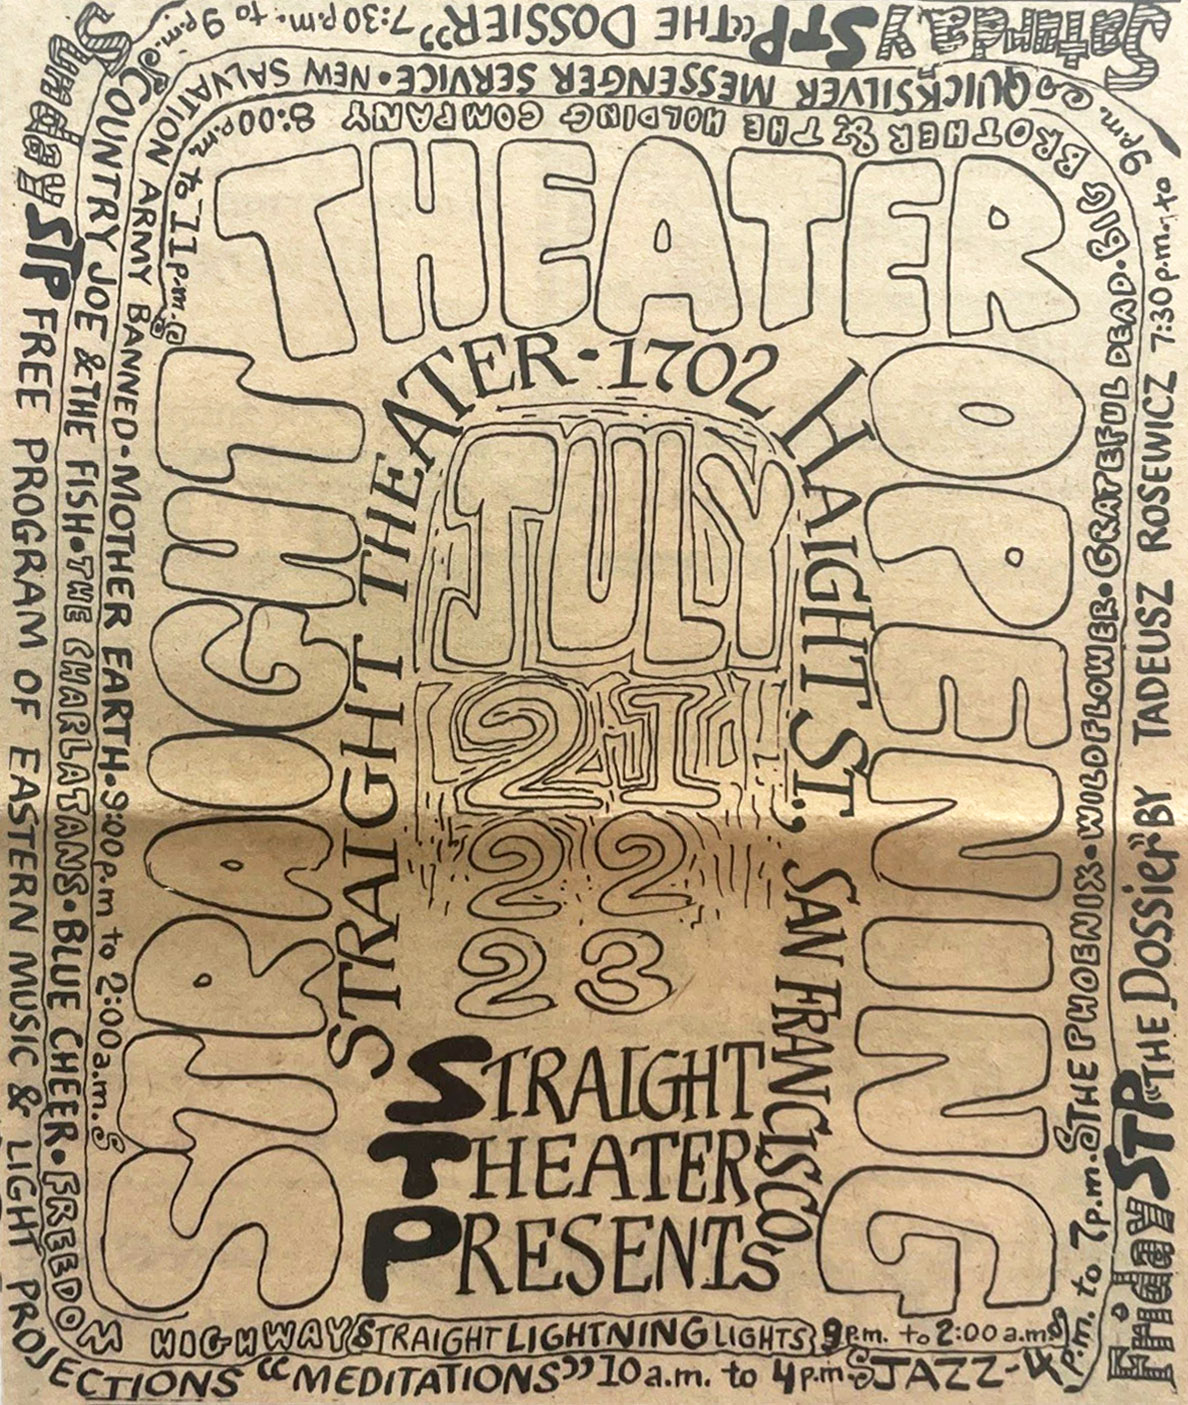 STRAIGHT THEATER OPENING
STRAIGHT THEATER · 1702 HAIGHT ST., SAN FRANCISCO
JULY
21
22
23
STRAIGHT
THEATER
PRESENTS
Friday STP "THE DOSSIER" BY TADEUSZ ROSEWICZ 7:30 p.m. to 9 p.m. QUICKSILVER MESSENGER SERVICE · NEW SALVATION ARMY BANNED · MOTHER EARTH · 9:00 p.m to 2:00 a.m.
Saturday STP "THE DOSSIER" 7:30 p.m. to 9 p.m. COUNTRY JOE & THE FISH · THE CHARLATANS · BLUE CHEER · FREEDOM HIGHWAY STRAIGHT LIGHTNING LIGHTS 9 p.m. to 2:00 a.m.
Sunday STP FREE PROGRAM OF EASTERN MUSIC & LIGHT PROJECTIONS "MEDITATIONS" 10 a.m. to 4 p.m. JAZZ - 4 p.m. to 7 p.m. THE PHOENIX · WILDFLOWER · GRATEFUL DEAD · BIG BROTHER & THE HOLDING COMPANY 8:00 p.m. to 11 p.m.